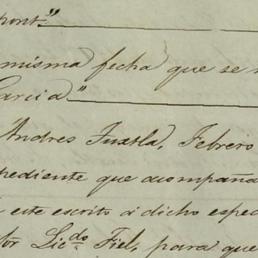 pont"
misma fecha que se
Garcia"
Andres Tuxtla, Febrero
pediente que acompaña
este escrito á dicho esped
tor Lic.do Fiel, para que